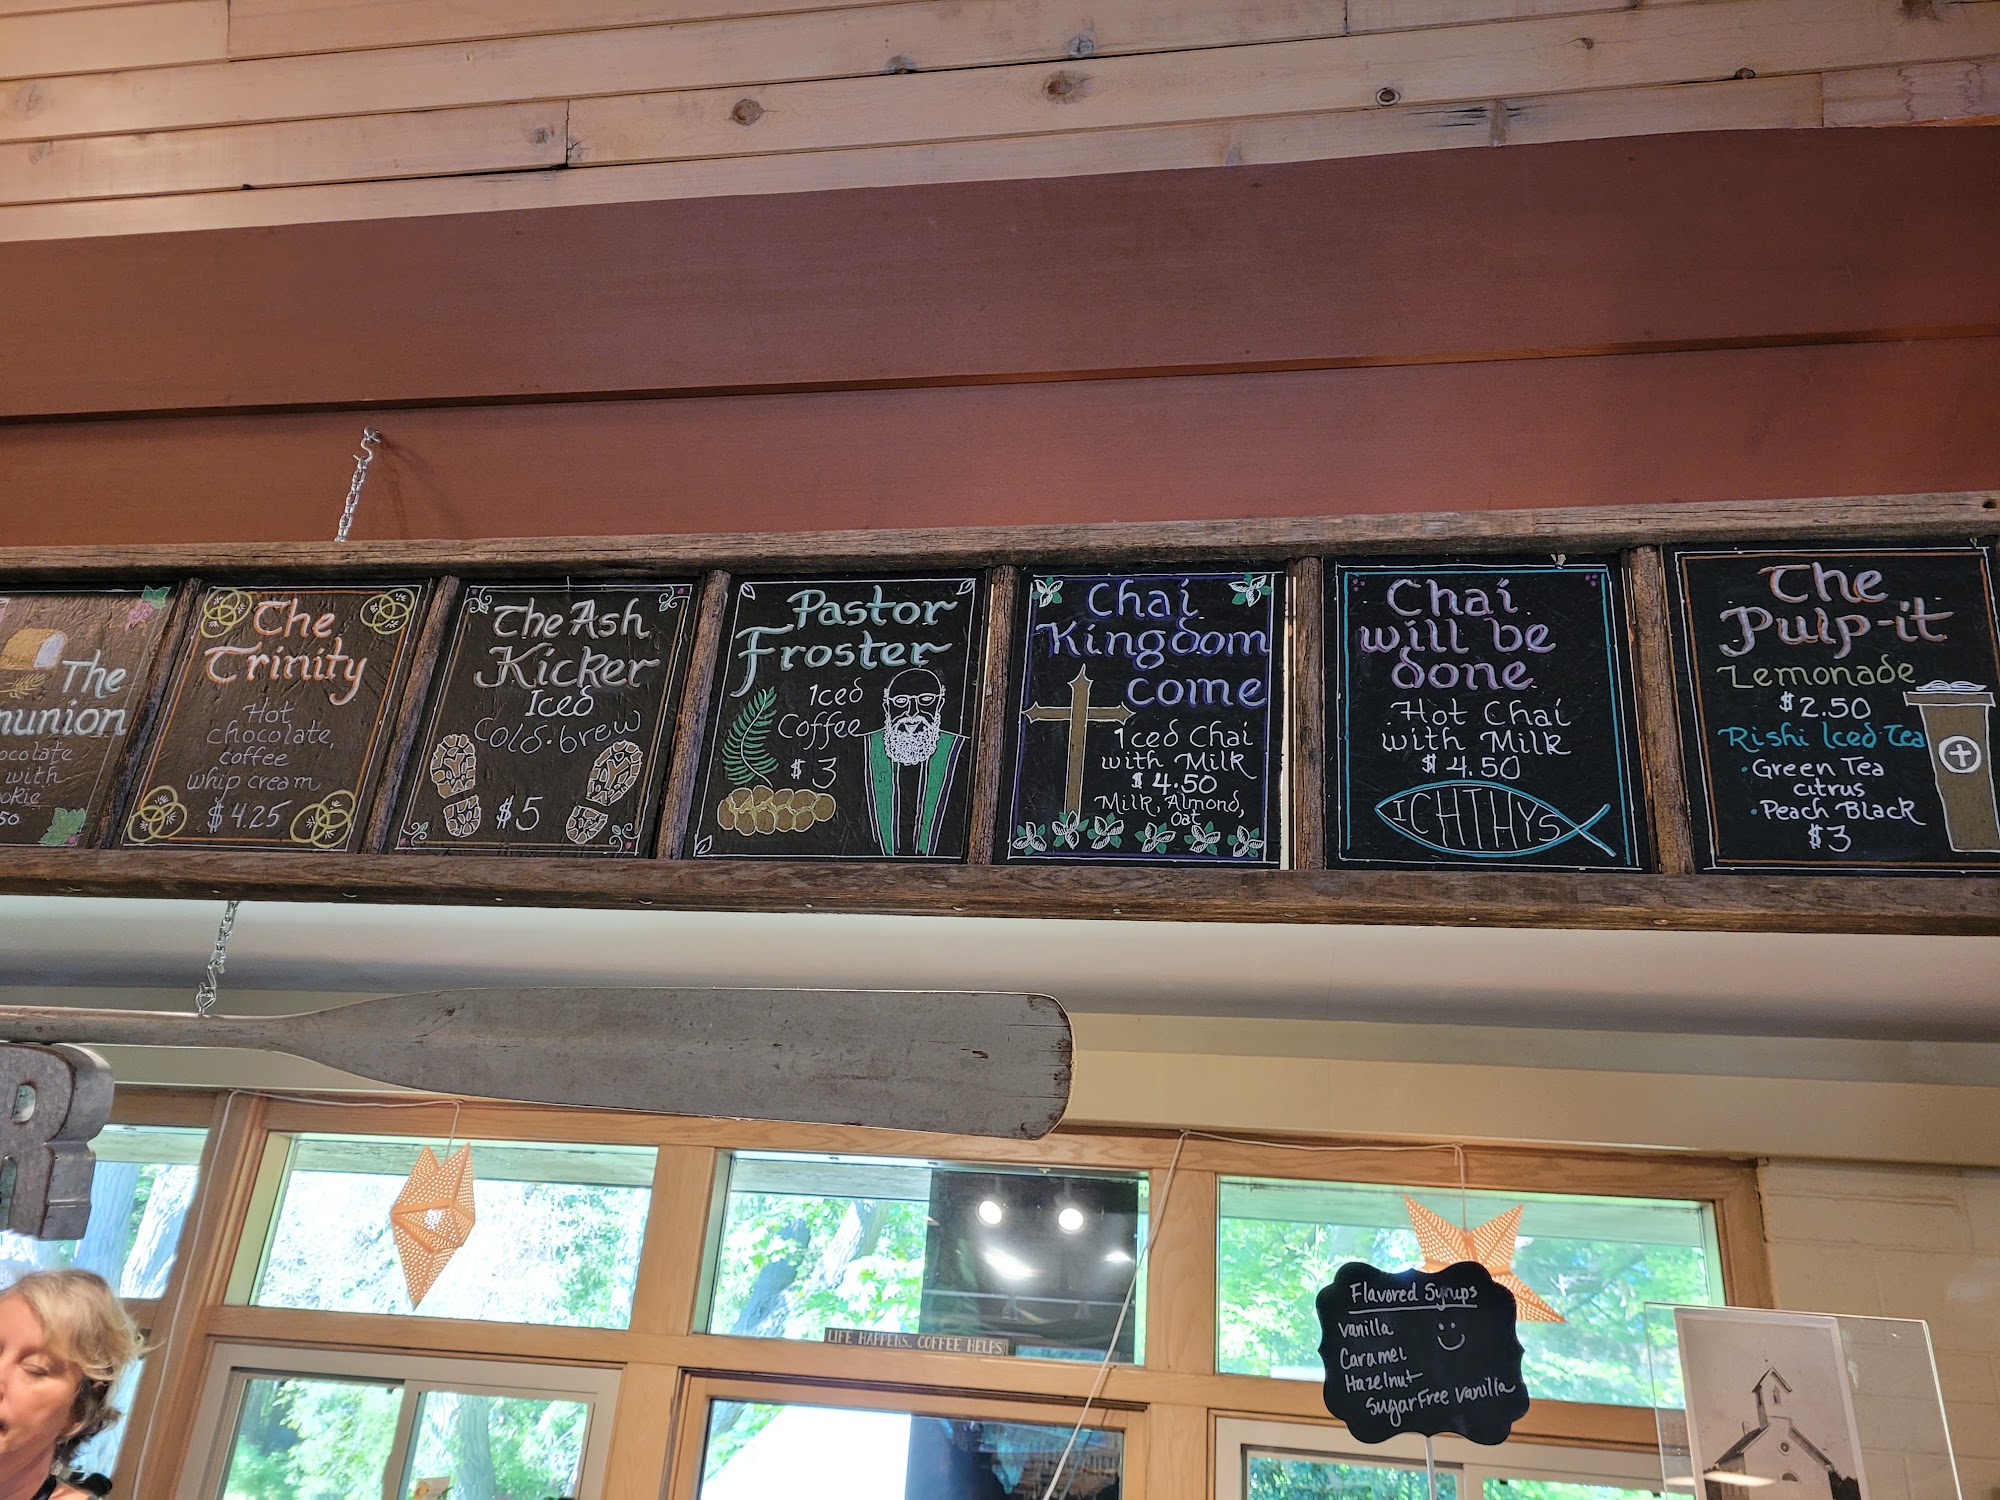 The
munion
ocolate
with
okie
50
The
Trinity
Hot
chocolate,
coffee
whip cream
$4.25
The Ash
Kicker
Iced
Cold-brew
$5
Pastor
Froster
Iced
Coffee
$3
Chai
Kingdom
come
Iced Chai
with Milk
$4.50
Milk, Almond,
Oat
Chai
will be
done
Hot Chai
with Milk
$4.50
ICHTHYS
The
Pulp-it
Lemonade
$2.50
Rishi Iced Tea
• Green Tea
citrus
• Peach Black
$3
R
LIFE HAPPENS.. COFFEE HELPS
Flavored Syrups
vanilla
Caramel
Hazelnut
SugarFree vanilla